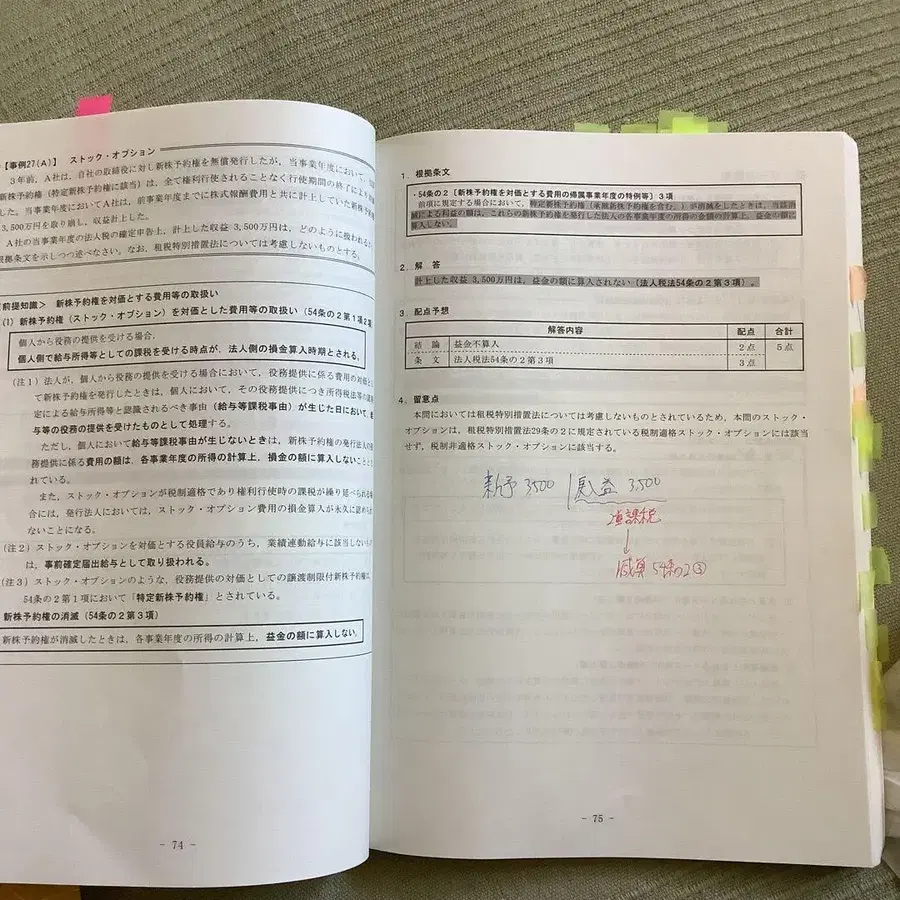 【事例27(A)】 ストック・オプション
3年前，A社は，自社の取締役に対し新株予約権を無償発行したが，当事業年度において，
新株予約権（特定新株予約権に該当）は，全て権利行使されることなく行使期間の終了により消滅
した。当事業年度においてA社は，前事業年度までに株式報酬費用と共に計上していた新株予約権
3,500万円を取り崩し，収益計上した。
A社の当事業年度の法人税の確定申告上，計上した収益 3,500万円は，どのように扱われるか，
根拠条文を示しつつ述べなさい。なお，租税特別措置法については考慮しないものとする。
前提知識＞ 新株予約権を対価とする費用等の取扱い
(1) 新株予約権（ストック・オプション）を対価とした費用等の取扱い（54条の2第1項2項
個人から役務の提供を受ける場合，
個人側で給与所得等としての課税を受ける時点が，法人側の損金算入時期とされる。
（注1）法人が，個人から役務の提供を受ける場合において，役務提供に係る費用の対価とし
て新株予約権を発行したときは，個人において，その役務提供につき所得税法等の規
定による給与所得等と認識されるべき事由（給与等課税事由）が生じた日において，
与等の役務の提供を受けたものとして処理する。
ただし，個人において給与等課税事由が生じないときは，新株予約権の発行法人の
務提供に係る費用の額は，各事業年度の所得の計算上，損金の額に算入しないことと
れている。
また，ストック・オプションが税制適格であり権利行使時の課税が繰り延べられる
合には，発行法人においては，ストック・オプション費用の損金算入が永久に認めら
ないことになる。
（注2）ストック・オプションを対価とする役員給与のうち，業績連動給与に該当しないもの
は，事前確定届出給与として取り扱われる。
（注3）ストック・オプションのような，役務提供の対価としての譲渡制限付新株予約権は，
54条の2第1項において「特定新株予約権」とされている。
新株予約権の消滅（54条の2第3項）
新株予約権が消滅したときは，各事業年度の所得の計算上，益金の額に算入しない。
- 74 -
1．根拠条文
・54条の2〔新株予約権を対価とする費用の帰属事業年度の特例等〕3項
前項に規定する場合において，特定新株予約権（承継新株予約権を含む。）が消滅をしたときは，当該消
滅による利益の額は，これらの新株予約権を発行した法人の各事業年度の所得の金額の計算上，益金の額に
算入しない。
2．解 答
計上した収益 3,500万円は，益金の額に算入されない（法人税法54条の2第3項）。
3．配点予想
解答内容 配点 合計
結 論 益金不算入 2点 5点
条 文 法人税法54条の2第3項 3点
4．留意点
本問においては租税特別措置法については考慮しないものとされているため，本問のストック・
オプションは，租税特別措置法29条の2に規定されている税制適格ストック・オプションには該当
せず，税制非適格ストック・オプションに該当する。
新予 3500 戻益 3,500
課税
↓
減算 54条の2③
- 75 -